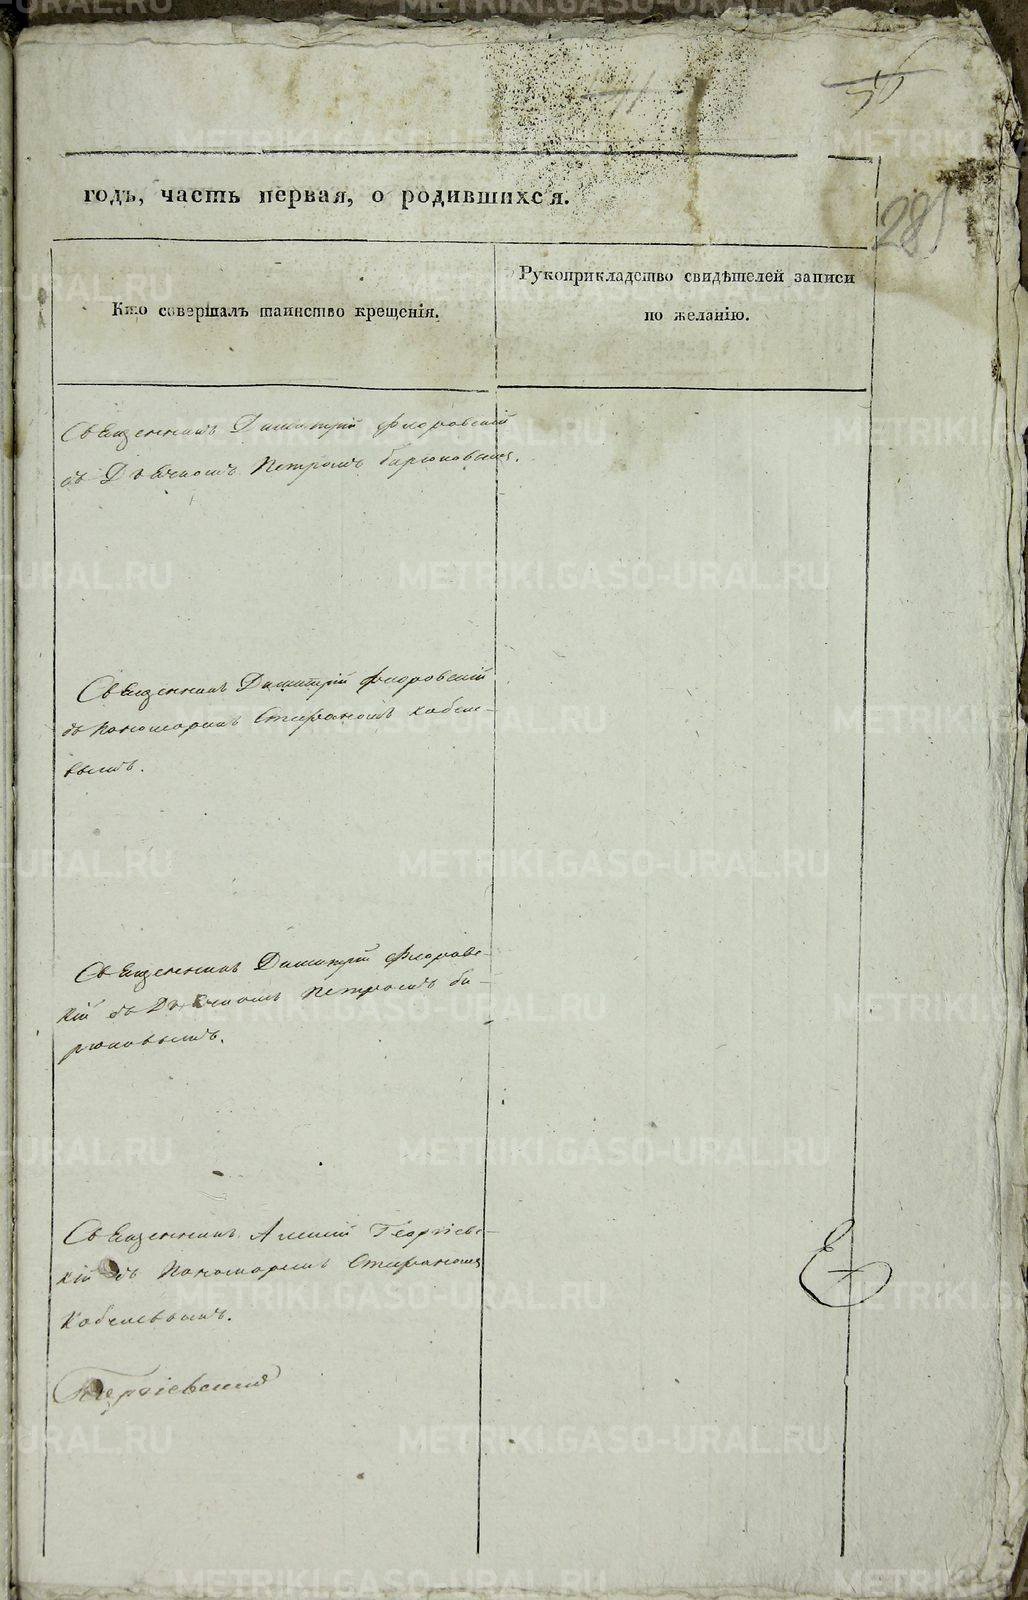 285
годъ, часть первая, о родившихся.
Кто совершалъ таинство крещенія.
Рукоприкладство свидѣтелей записи
по желанію.
Священникъ Димитрій Флоровскій
съ Дьячкомъ Петромъ Бирюковымъ.
Священникъ Димитрій Флоровскій
съ Пономаремъ Стефаномъ Кобеле-
вымъ.
Священникъ Димитрій Флоровс-
кій съ Дьячкомъ Петромъ Би-
рюковымъ.
Священникъ Алексій Георгіевс-
кій съ Пономаремъ Стефаномъ
Кобелевымъ.
Георгіевскій
METRIKI.GASO-URAL.RU